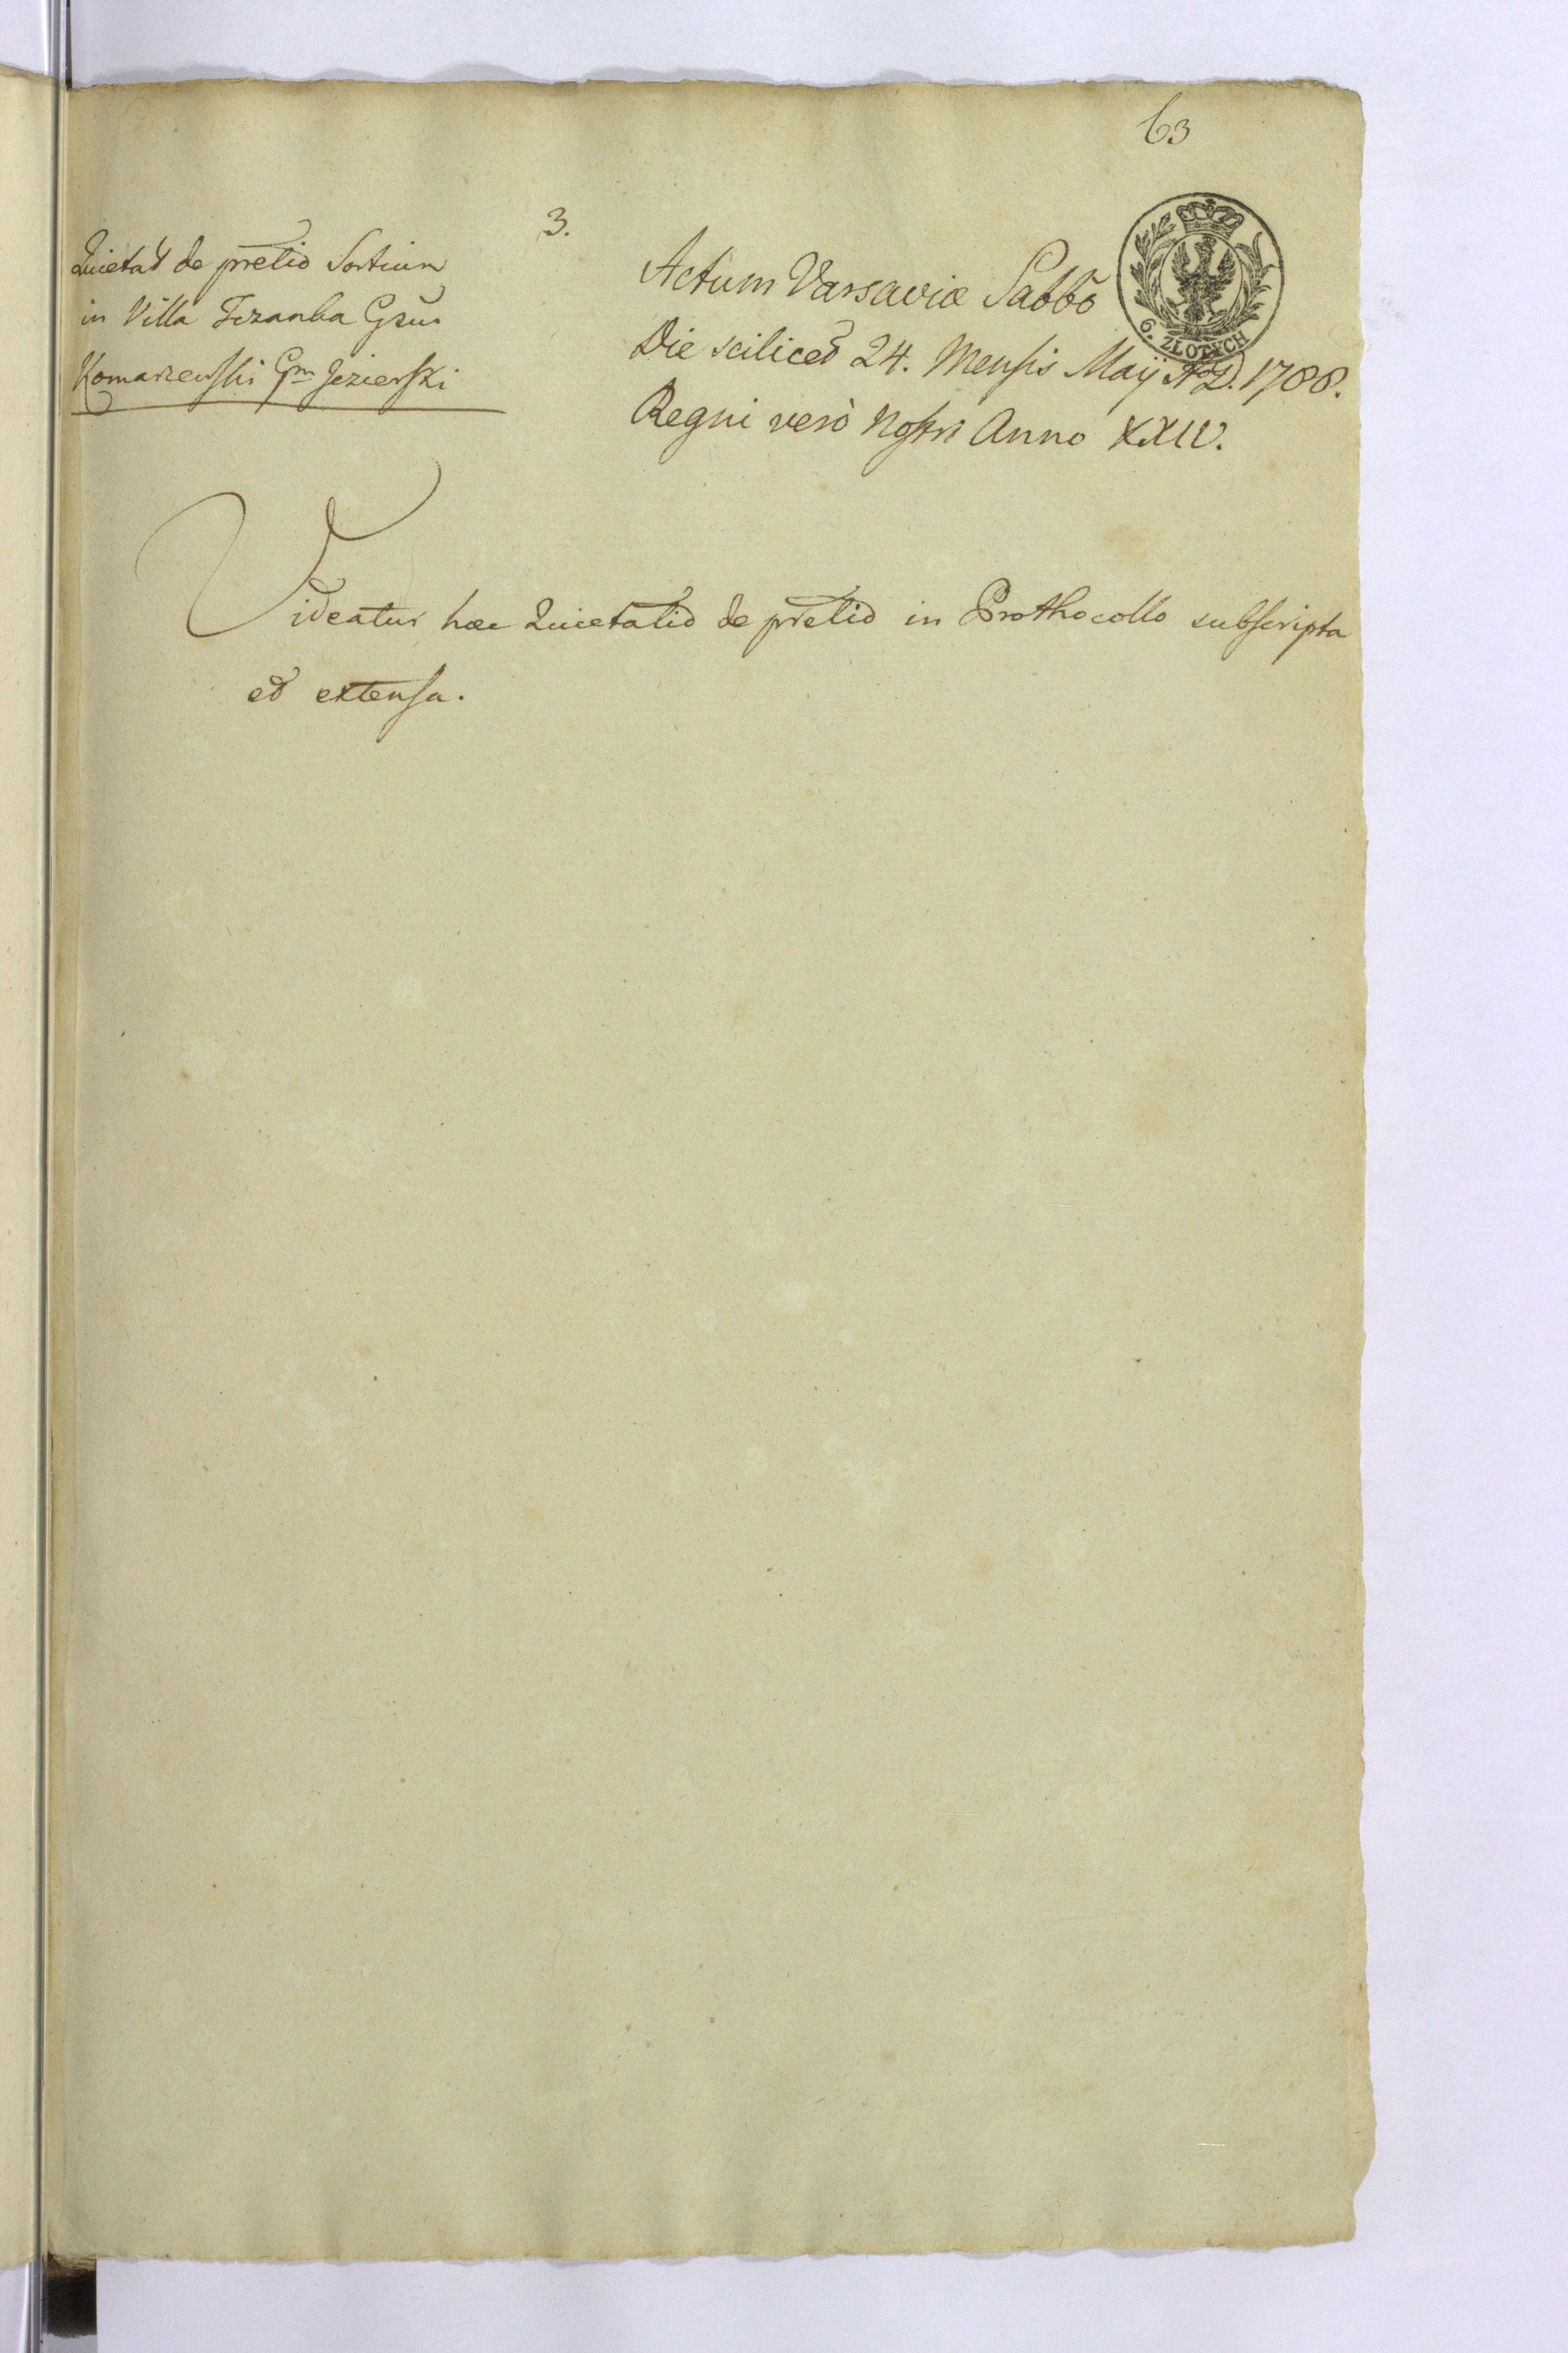 63
3.
Quietat de pretio Sortium
in Villa Grsus
Komarzewski Grm Jezierski
Actum Varsaviæ Sabbo
6. ZŁOTYCH
Die scilicet 24. Mensis Maÿ A D. 1788.
Regni verò Nostri Anno XXIV.
Videatur hæc Quietatio de pretio in Prothocollo subscripta
et extensa.